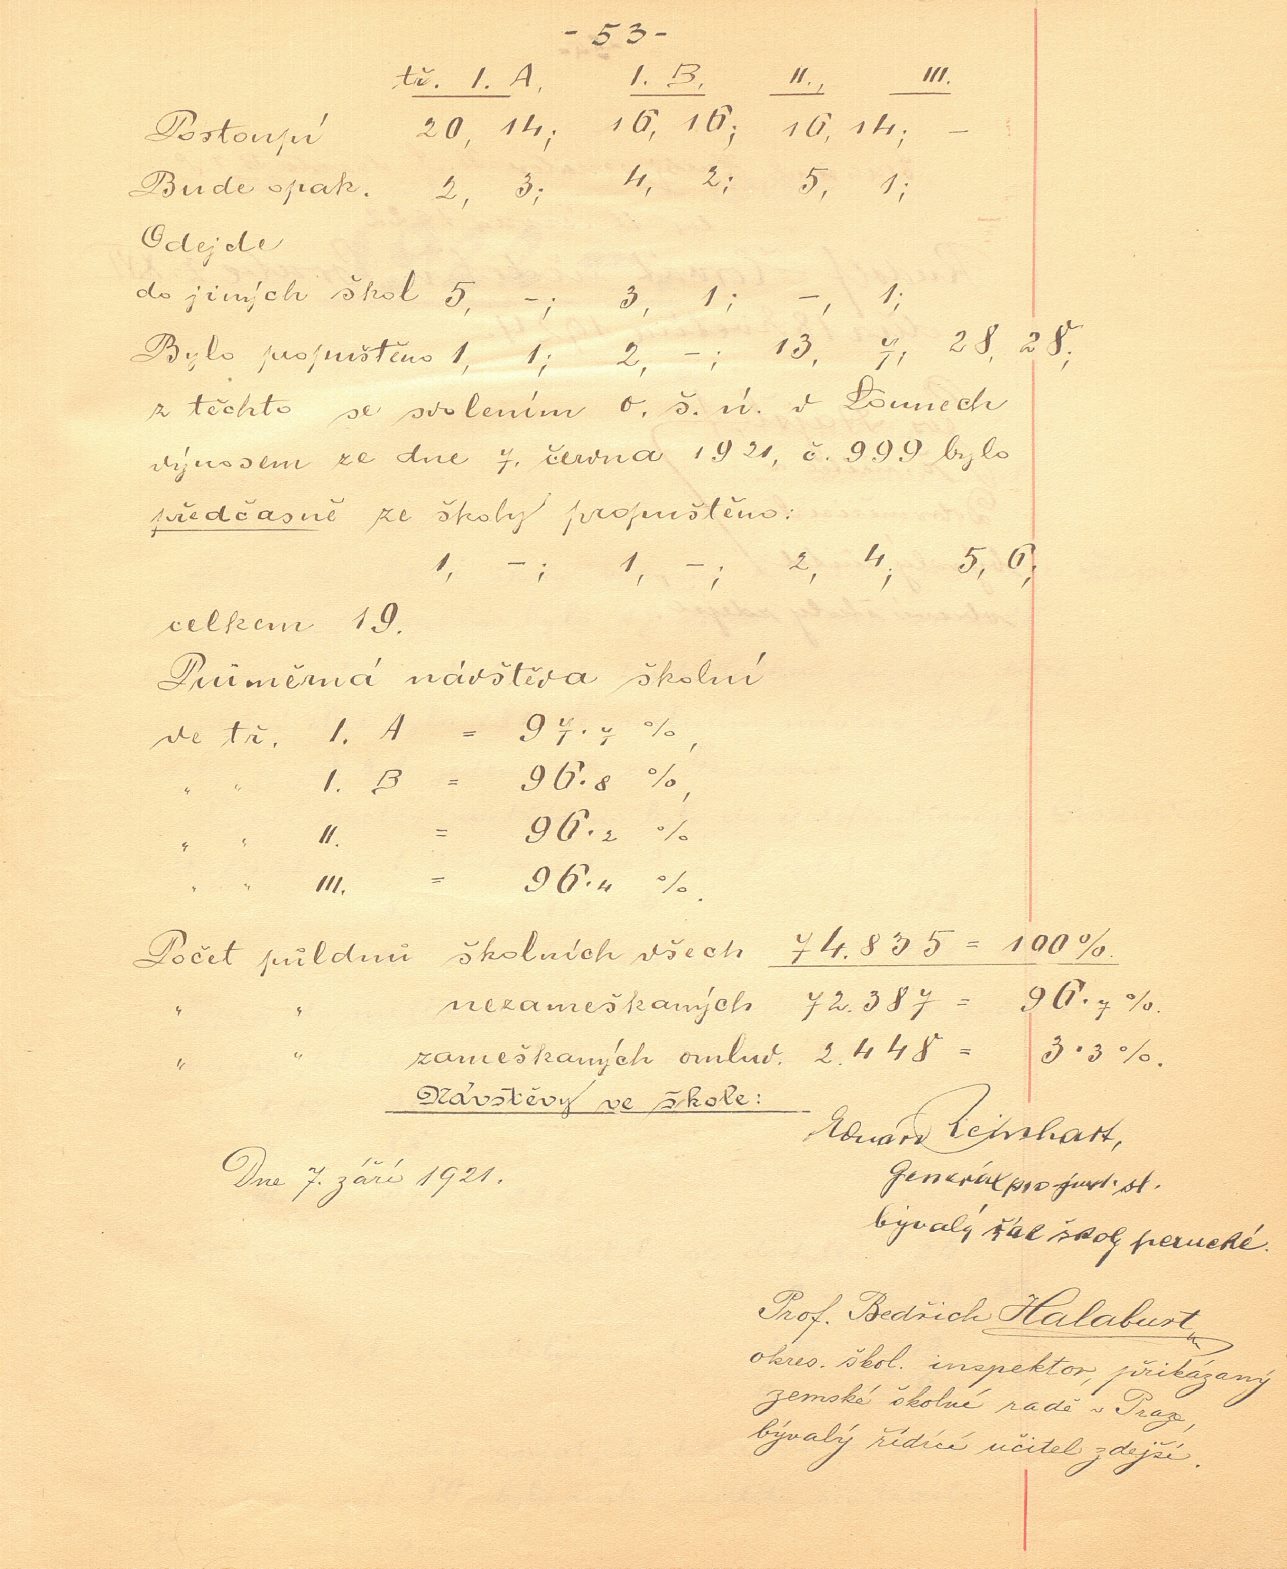 - 53 -
tř. I. A, I. B, II., III.
Postoupí 20, 14; 16, 16; 16, 14; –
Bude opak. 2, 3; 4, 2; 5, 1;
Odejde
do jiných škol 5, –; 3, 1; –, 1;
Bylo propuštěno 1, 1; 2, –; 13, 7; 28, 28;
z těchto se svolením o. š. ú. v Lounech
výnosem ze dne 7. června 1921, č. 999 bylo
předčasně ze školy propuštěno:
1, –; 1, –; 2, 4; 5, 6;
celkem 19.
Průměrná návštěva školní
ve tř. I. A = 97.7 %,
" " I. B = 96.8 %,
" " II. = 96.2 %
" " III. = 96.4 %.
Počet půldnů školních všech 74.835 = 100%.
" " nezameškaných 72.387 = 96.7 %.
" " zameškaných omluv. 2.448 = 3.3 %.
Návštěvy ve škole:
Eduard
Dne 7. září 1921.
Generál st.
bývalý žák školy perucké.
Prof. Bedřich Halaburt
okres. škol. inspektor, přikázaný
zemské školní radě v Praze,
bývalý řídící učitel zdejší.